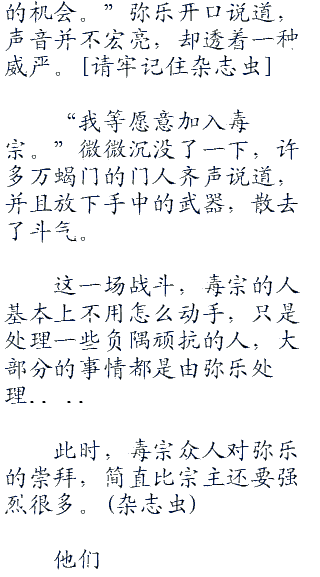 的机会。”弥乐开口说道，
声音并不宏亮，却透着一种
威严。[请牢记住杂志虫]
“我等愿意加入毒
宗。”微微沉没了一下，许
多万蝎门的门人齐声说道，
并且放下手中的武器，散去
了斗气。
这一场战斗，毒宗的人
基本上不用怎么动手，只是
处理一些负隅顽抗的人，大
部分的事情都是由弥乐处
理．．．．
此时，毒宗众人对弥乐
的崇拜，简直比宗主还要强
烈很多。(杂志虫)
他们